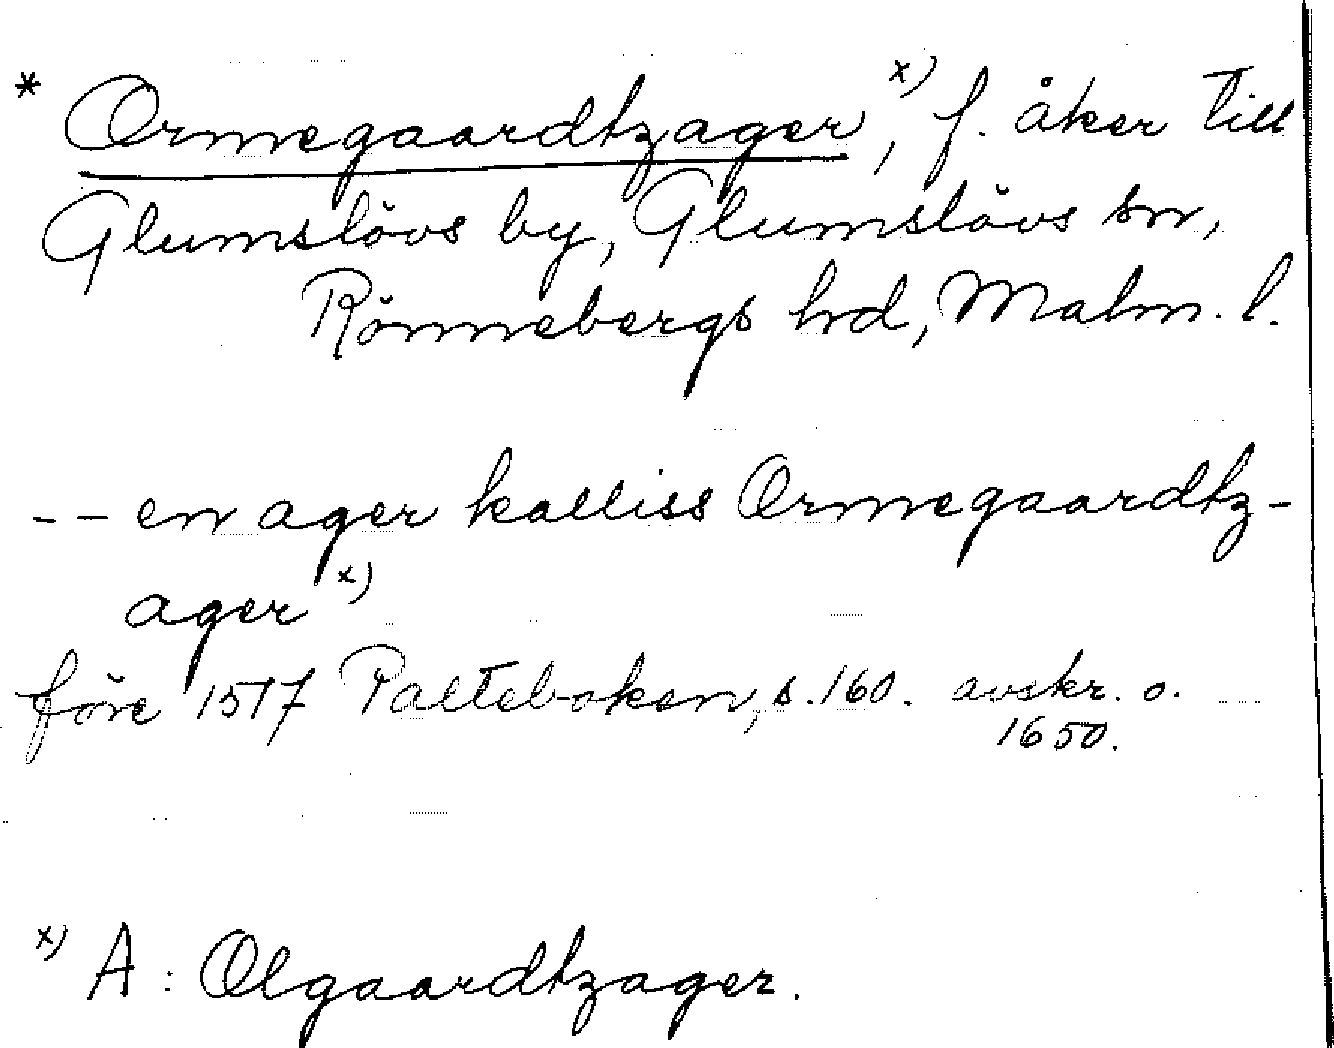 * Ormegaardtzager x), f. åker till
Glumslövs by, Glumslövs sn,
Rönnebergs hd, Malm. l.
-- en ager kalliss Ormegaardtz-
ager x)
före 1517 Palteboken, s. 160. avskr. o.
1650.
x) A: Olgaardtzager.